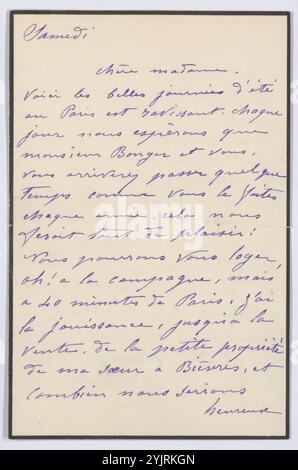 Samedi
chère madame.
Voici les belles journées d'été
ou Paris est ravissant. chaque
jour nous espérons que
monsieur Bonger et vous,
vous arriverez passer quelque
temps comme vous le faites
chaque année cela nous
ferait tant de plaisir!
Nous pourrons vous loger,
oh! a la campagne, mais
a 40 minutes de Paris; j'ai
la jouissance, jusqu'a la
vente, de la petite propriété
de ma sœur a Bièvres, et
combien nous serions
heureuse
alamy
Image ID: 2YJRKGN
www.alamy.com